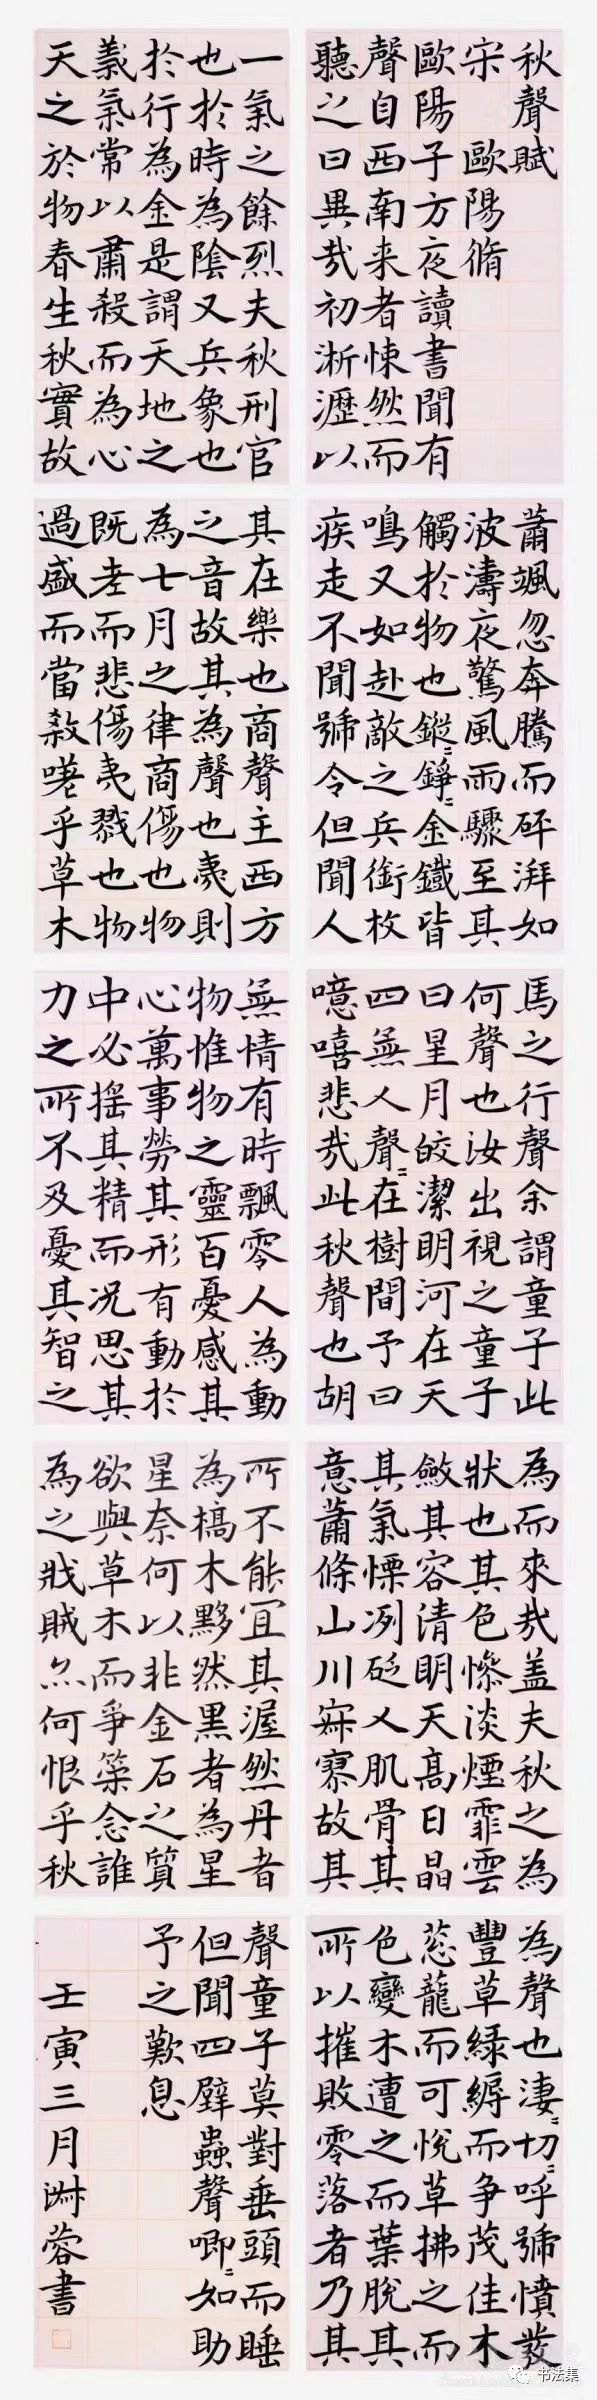 秋聲賦
宋 歐陽脩
歐陽子方夜讀書聞有
聲自西南来者悚然而
聽之曰異哉初淅瀝以
蕭颯忽奔騰而砰湃如
波濤夜驚風雨驟至其
觸於物也鏦〻錚〻金鐵皆
鳴又如赴敵之兵銜枚
疾走不聞號令但聞人
馬之行聲余謂童子此
何聲也汝出視之童子
曰星月皎潔明河在天
四無人聲〻在樹間予曰
噫嘻悲哉此秋聲也胡
為而來哉盖夫秋之為
狀也其色慘淡煙霏雲
斂其容清明天高日晶
其氣慄冽砭人肌骨其
意蕭條山川寂寥故其
為聲也淒〻切〻呼號憤發
豐草綠縟而争茂佳木
葱蘢而可悅草拂之而
色變木遭之而葉脫其
所以摧敗零落者乃其
一氣之餘烈夫秋刑官
也於時為陰又兵象也
於行為金是謂天地之
義氣常以肅殺而為心
天之於物春生秋實故
其在樂也商聲主西方
之音故其為聲也夷則
為七月之律商傷也物
既老而悲傷夷戮也物
過盛而當殺嗟乎草木
無情有時飄零人為動
物惟物之靈百憂感其
心萬事勞其形有動於
中必摇其精而况思其
力之所不及憂其智之
所不能宜其渥然丹者
為槁木黟然黑者為星
星奈何以非金石之質
欲與草木而爭榮念誰
為之戕賊亦何恨乎秋
聲童子莫對垂頭而睡
但聞四壁蟲聲唧〻如助
予之歎息
壬寅三月 蓉書
书法集